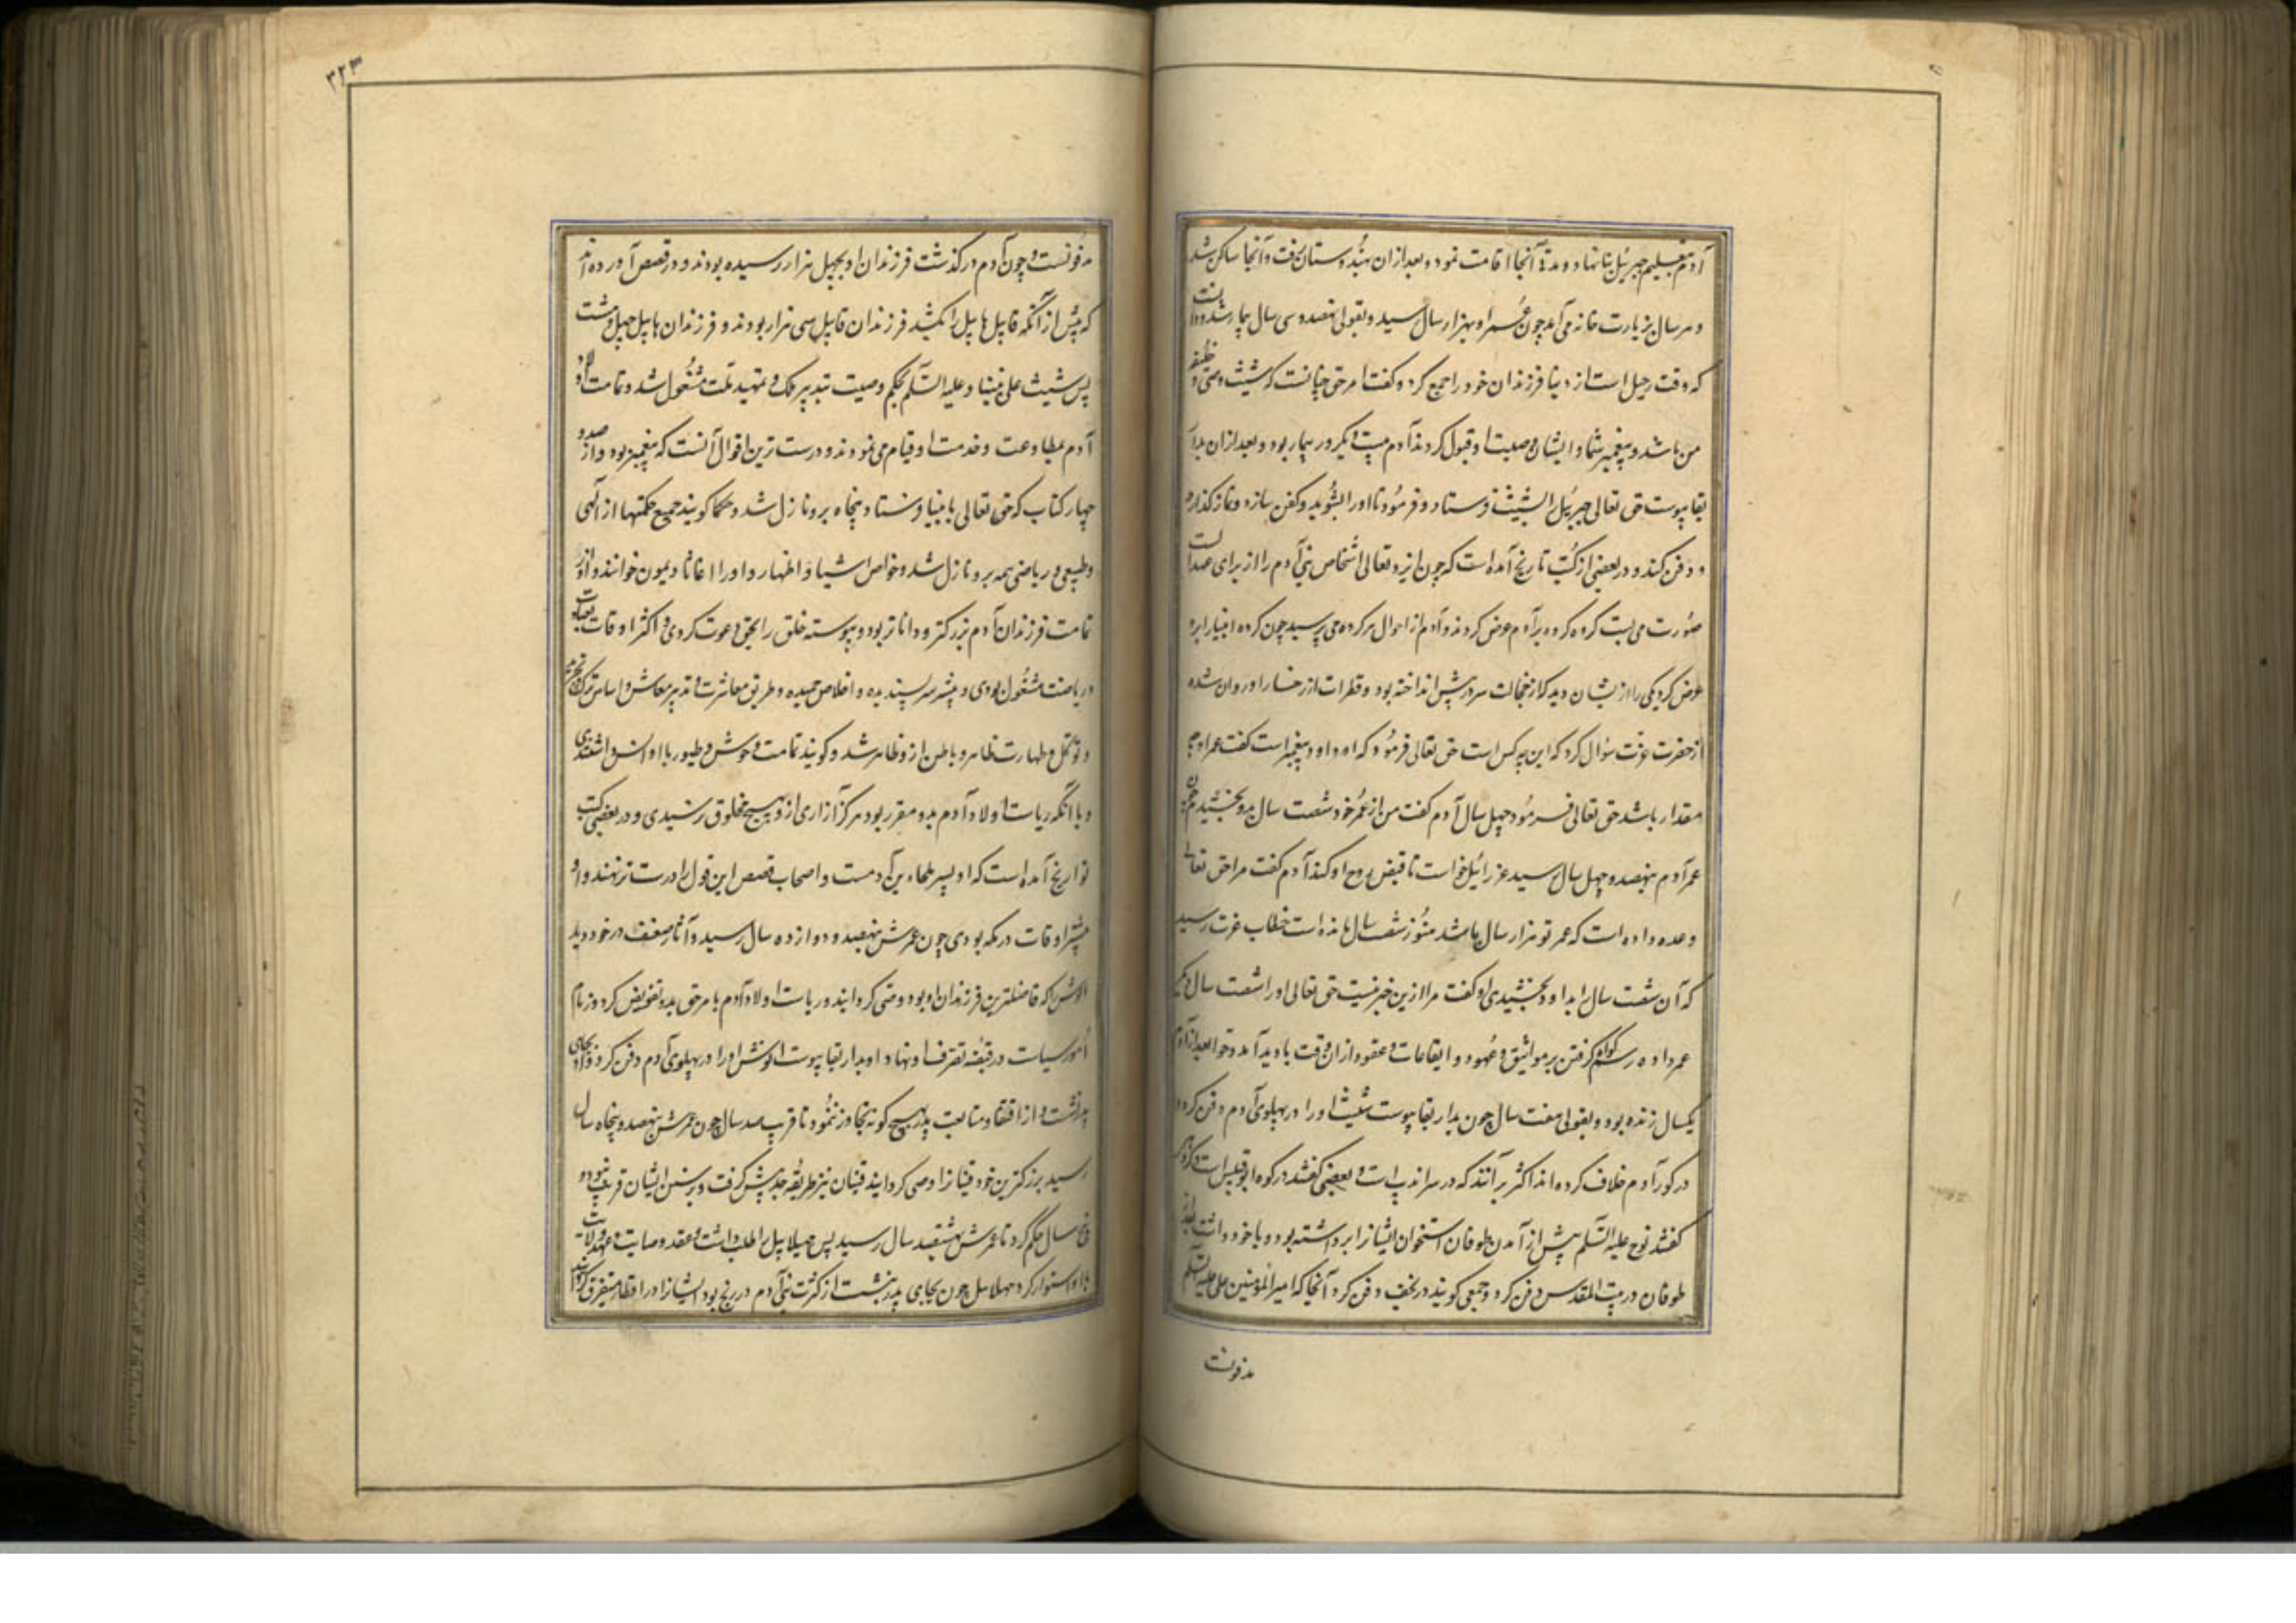 آدم بتعلیم جبرئیل بنا نهاد و مدتی آنجا اقامت نمود و بعد از ان بهندوستان رفت و آنجا ساکن شد
و هر سال بزیارت خانه می آمد چون عمر او بهزار سال رسید و بقولی نهصد و سی سال بیمار شد و دانست
که وقت رحیل است از دنیا فرزندان خود را جمع کرد و کفت امر حق چنانست که شیث وصی و خلیفه
من باشد و پیغمبر شما و ایشان وصیت او قبول کردند آدم بیست و یکروز بیمار بود و بعد از ان بدار
بقا پیوست حق تعالی جبرئیل را بشیث فرستاد و فرمود تا او را بشوید و کفن سازد و نماز کذارد
و دفن کند و در بعضی از کتب تاریخ آمده است که چون ایزد تعالی اشخاص بنی آدم را از برای عهد الست
صورت می بست کروه کروه بر آدم عرض کردند و آدم از احوال هر کروه می پرسید چون کروه انبیا را برو
عرض کرد یکی را از ایشان دید که از خجالت سر در پیش انداخته بود و قطرات از رخسار او روان شده
از حضرت عزت سؤال کرد که این چه کس است حق تعالی فرمود که او داود پیغمبر است کفت عمر او چه
مقدار باشد حق تعالی فرمود چهل سال آدم کفت من از عمر خود شصت سال بدو بخشیدم چون
عمر آدم بنهصد و چهل سال رسید عزرائیل خواست تا قبض روح او کند آدم کفت مرا حق تعالی
وعده داده است که عمر تو هزار سال باشد هنوز شصت سال مانده است خطاب عزت رسید
که آن شصت سال را بداود بخشیدی او کفت مرا ازین خبر نیست حق تعالی او را شصت سال دیکر
عمر داد و رسم کواه کرفتن بر مواثیق و عهود و ایقاعات و عقود از ان وقت بادید آمد و حوا بعد از آدم
یکسال زنده بود و بقولی هفت سال چون بدار بقا پیوست شیث او را در پهلوی آدم دفن کرد و
در کور آدم خلاف کرده اند اکثر بر آنند که در سراندیب است و بعضی کفتند در کوه ابو قبیس است و کروهی
کفتند نوح علیه السلم پیش از آمدن طوفان استخوان ایشانرا برداشته بود و با خود داشت بعد از
طوفان در بیت المقدس دفن کرد و جمعی کویند در نجف دفن کرد آنجا که امیر المؤمنین علی علیه السلم
مدفونست
۳۲۳
مدفونست و چون آدم در کذشت فرزندان او بچهل هزار رسیده بودند و در قصص آورده اند
که پس از آنکه قابیل هابیل را بکشد فرزندان قابیل سی هزار بودند و فرزندان هابیل چهل و هشت
پس شیث علی نبینا و علیه السلم بحکم وصیت بتدبیر ملک و تمهید ملت مشغول شد و تمامت اولاد
آدم بمطاوعت و خدمت او قیام می نمودند و درست ترین اقوال آنست که پیغمبر بود و از صد و
چهار کتاب که حق تعالی بانبیا فرستاد پنجاه برو نازل شد و حکما کویند جمیع حکمتها از الهی
و طبیعی و ریاضی همه برو نازل شد و خواص اشیا و اظهار داد و او را اغاثا دیمون خوانند و او از
تمامت فرزندان آدم بزرکتر و داناتر بود و پیوسته خلق را بحق دعوت کردی و اکثر اوقات بعبادت
و ریاضت مشغول بودی و بیشتر سیر پسندیده و اخلاص حمیده و طریق معاشرت و تدبیر معاش و اساس ترک و تجرید
و توکل و طهارت ظاهر و باطن از و ظاهر شد و کویند تمامت وحوش و طیور با او انس داشتندی
و با آنکه ریاست اولاد آدم بدو مقرر بود هرکز آزاری از و بهیچ مخلوق نرسیدی و در بعضی کتب
تواریخ آمده است که او پسر صلحاء بن آدمست و اصحاب قصص این قول را درست تر نهند و او
بیشتر اوقات در مکه بودی چون عمرش بنهصد و دوازده سال رسید و آثار ضعف در خود دید
انوش را که فاضلترین فرزندان او بود وصی کردانید و ریاست اولاد آدم بامر حق بدو تفویض کرد و زمام
امور سیاست در قبضه تصرف او نهاد او بدار بقا پیوست انوش او را در پهلوی آدم دفن کرد و بجای
پدر نشست و از اقتفا و متابعت پدر بهیچ کونه تجاوز ننمود تا قریب صد سال چون عمرش بنهصد و پنجاه سال
رسید بزرکترین خود قینانرا وصی کردانید قینان نیز طریقه جد پیش کرفت و بر سنن ایشان قریب نود و
سال حکم کرد تا عمرش بهشتصد سال رسید پس مهلاییل را طلب داشت و عقد وصایت و عهد ولایت
با او استوار کرد مهلاییل چون بجای پدر بنشست از کثرت بنی آدم در رنج بود ایشانرا در اقطار متفرق کردانید